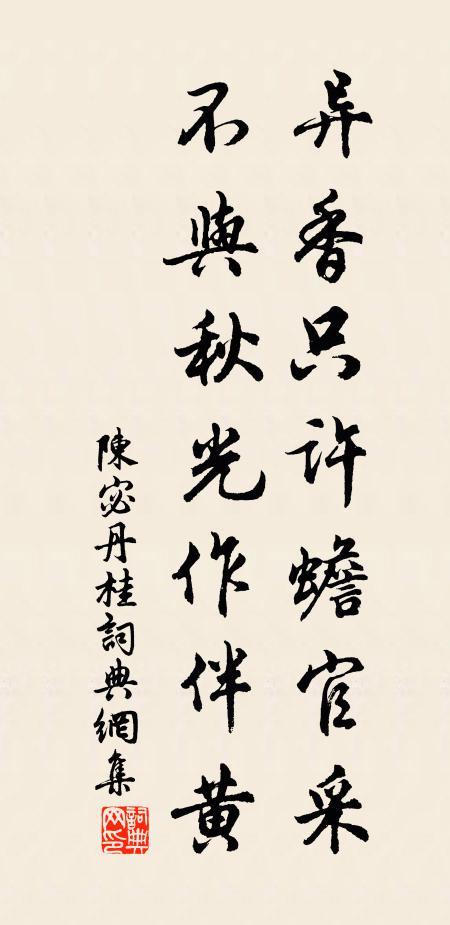 异香只許蟾官采
不與秋光作伴黄
陳宓丹桂詞典網集
詞典网印